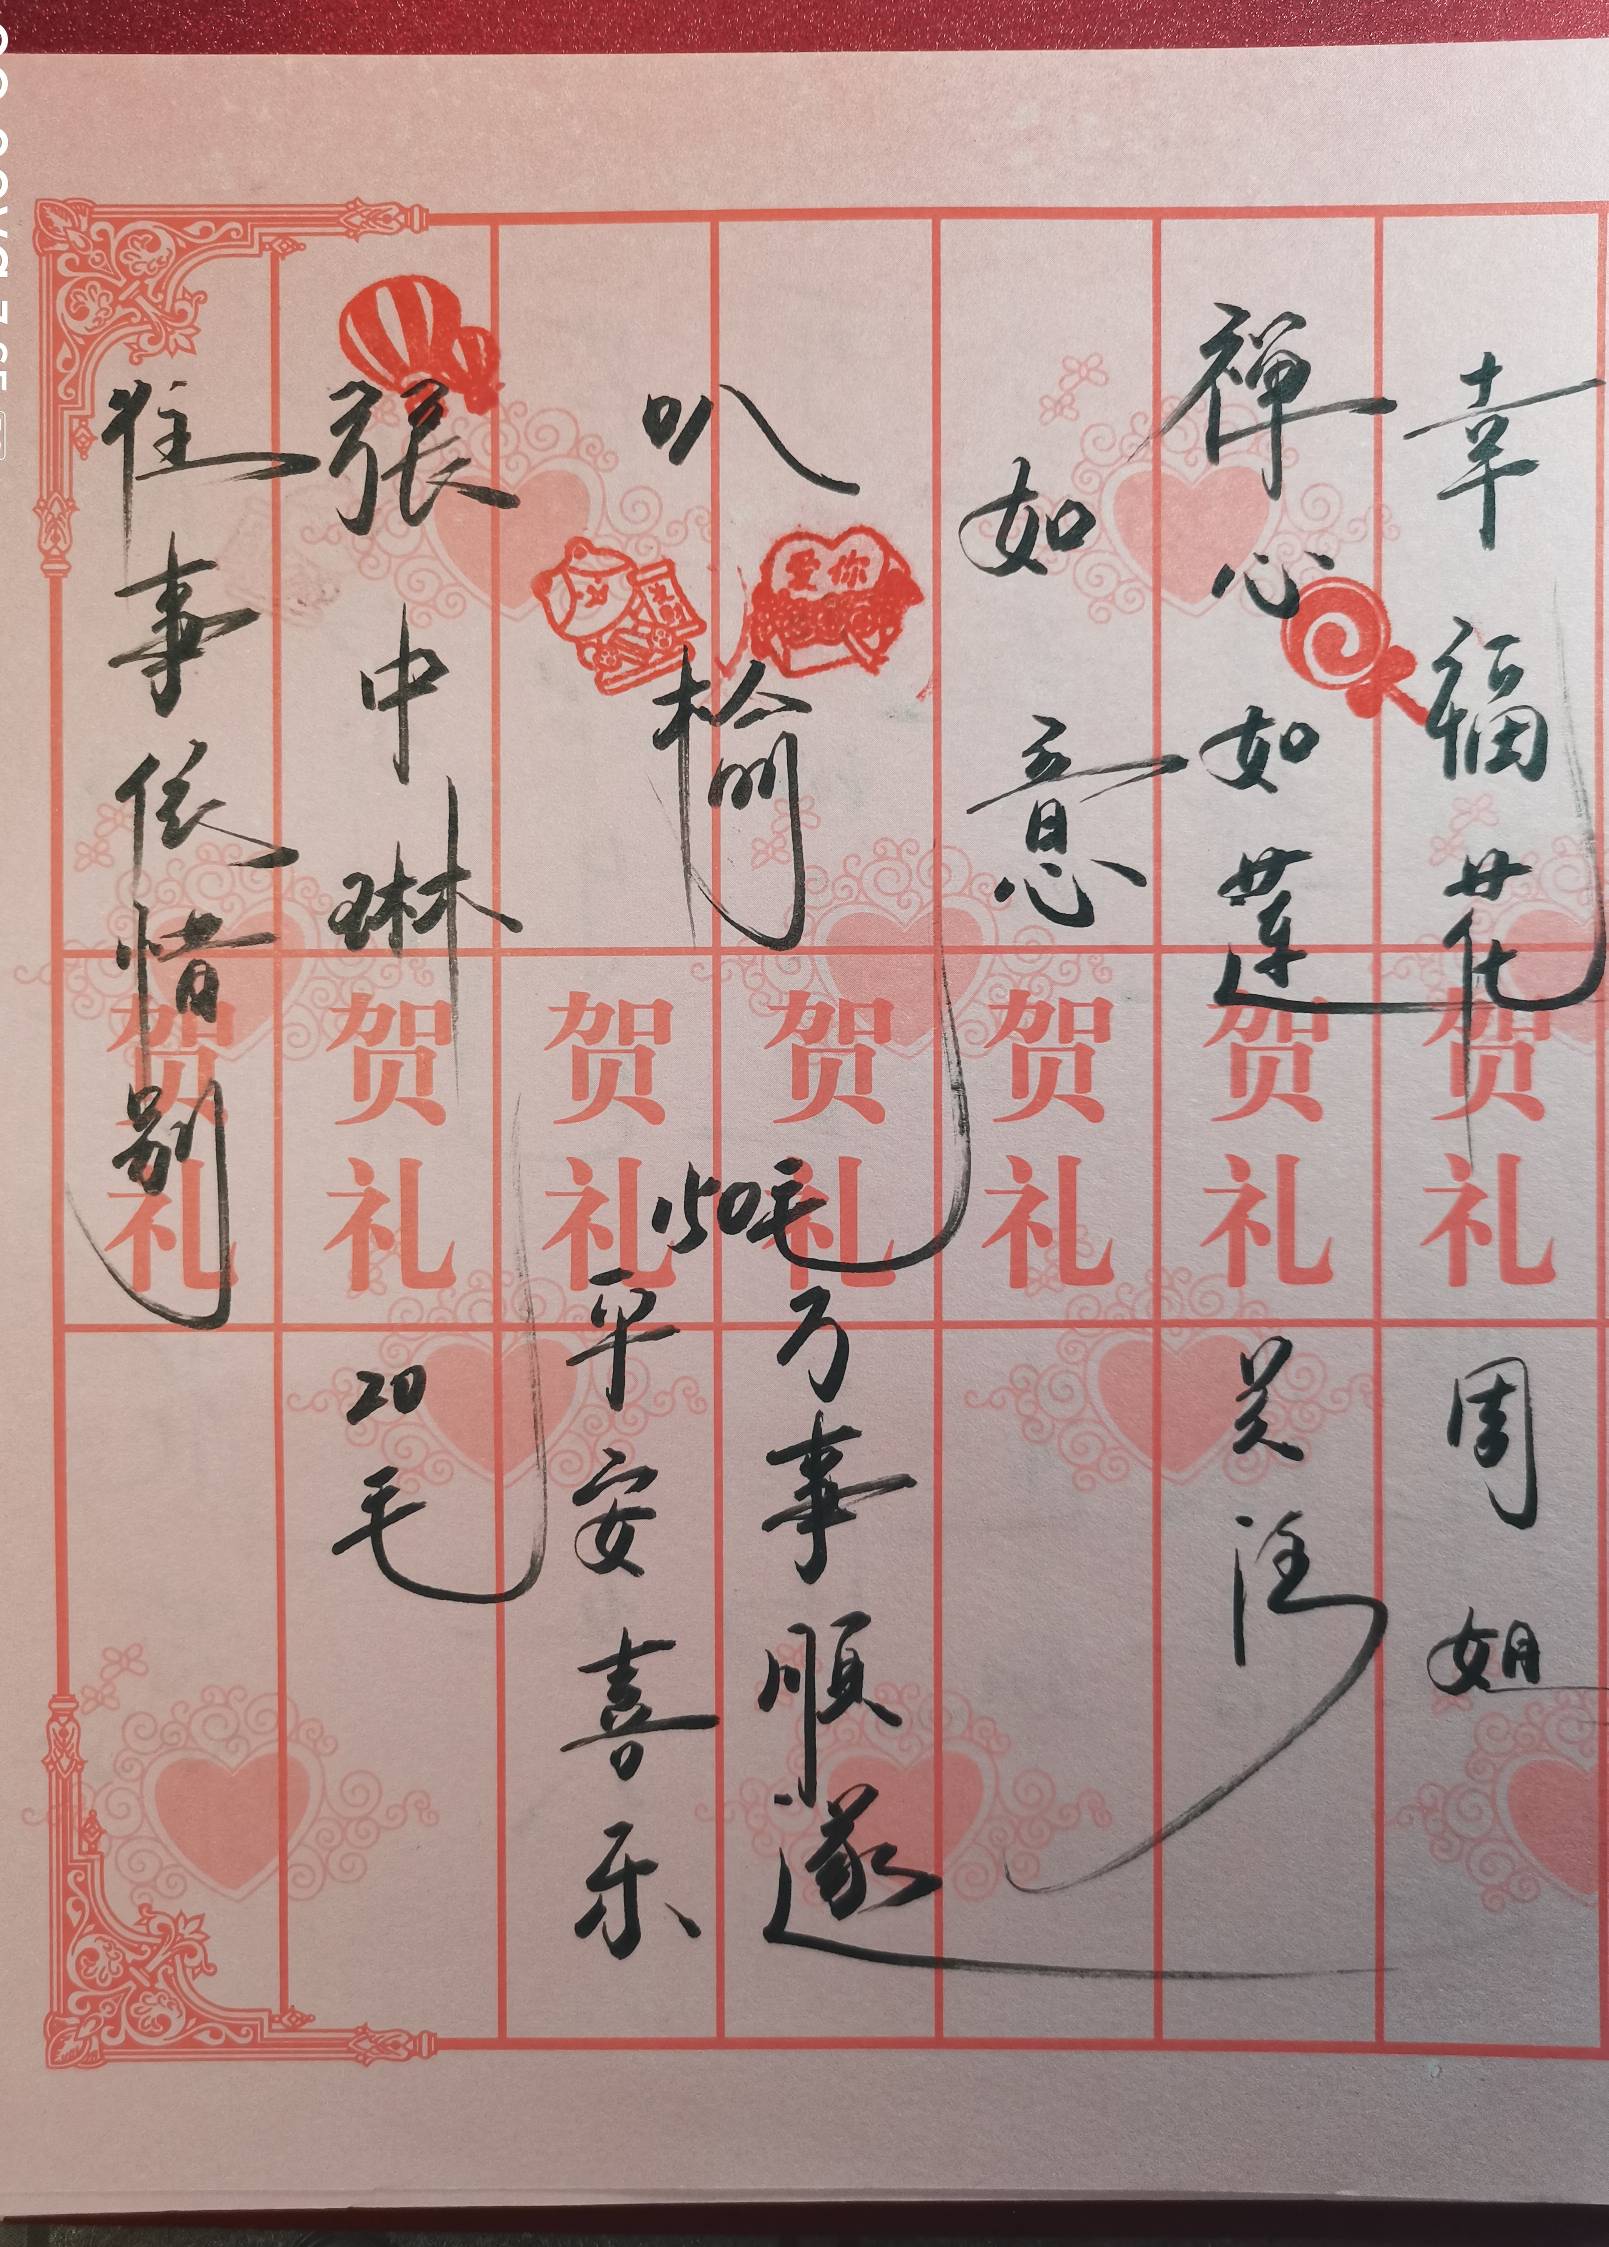 幸福花
周姐
禅心如莲
关注
如意
叭榆
150毛
万事顺遂
平安喜乐
張中琳
20毛
往事依惜别
贺礼
贺礼
贺礼
贺礼
贺礼
贺礼
贺礼
爱你